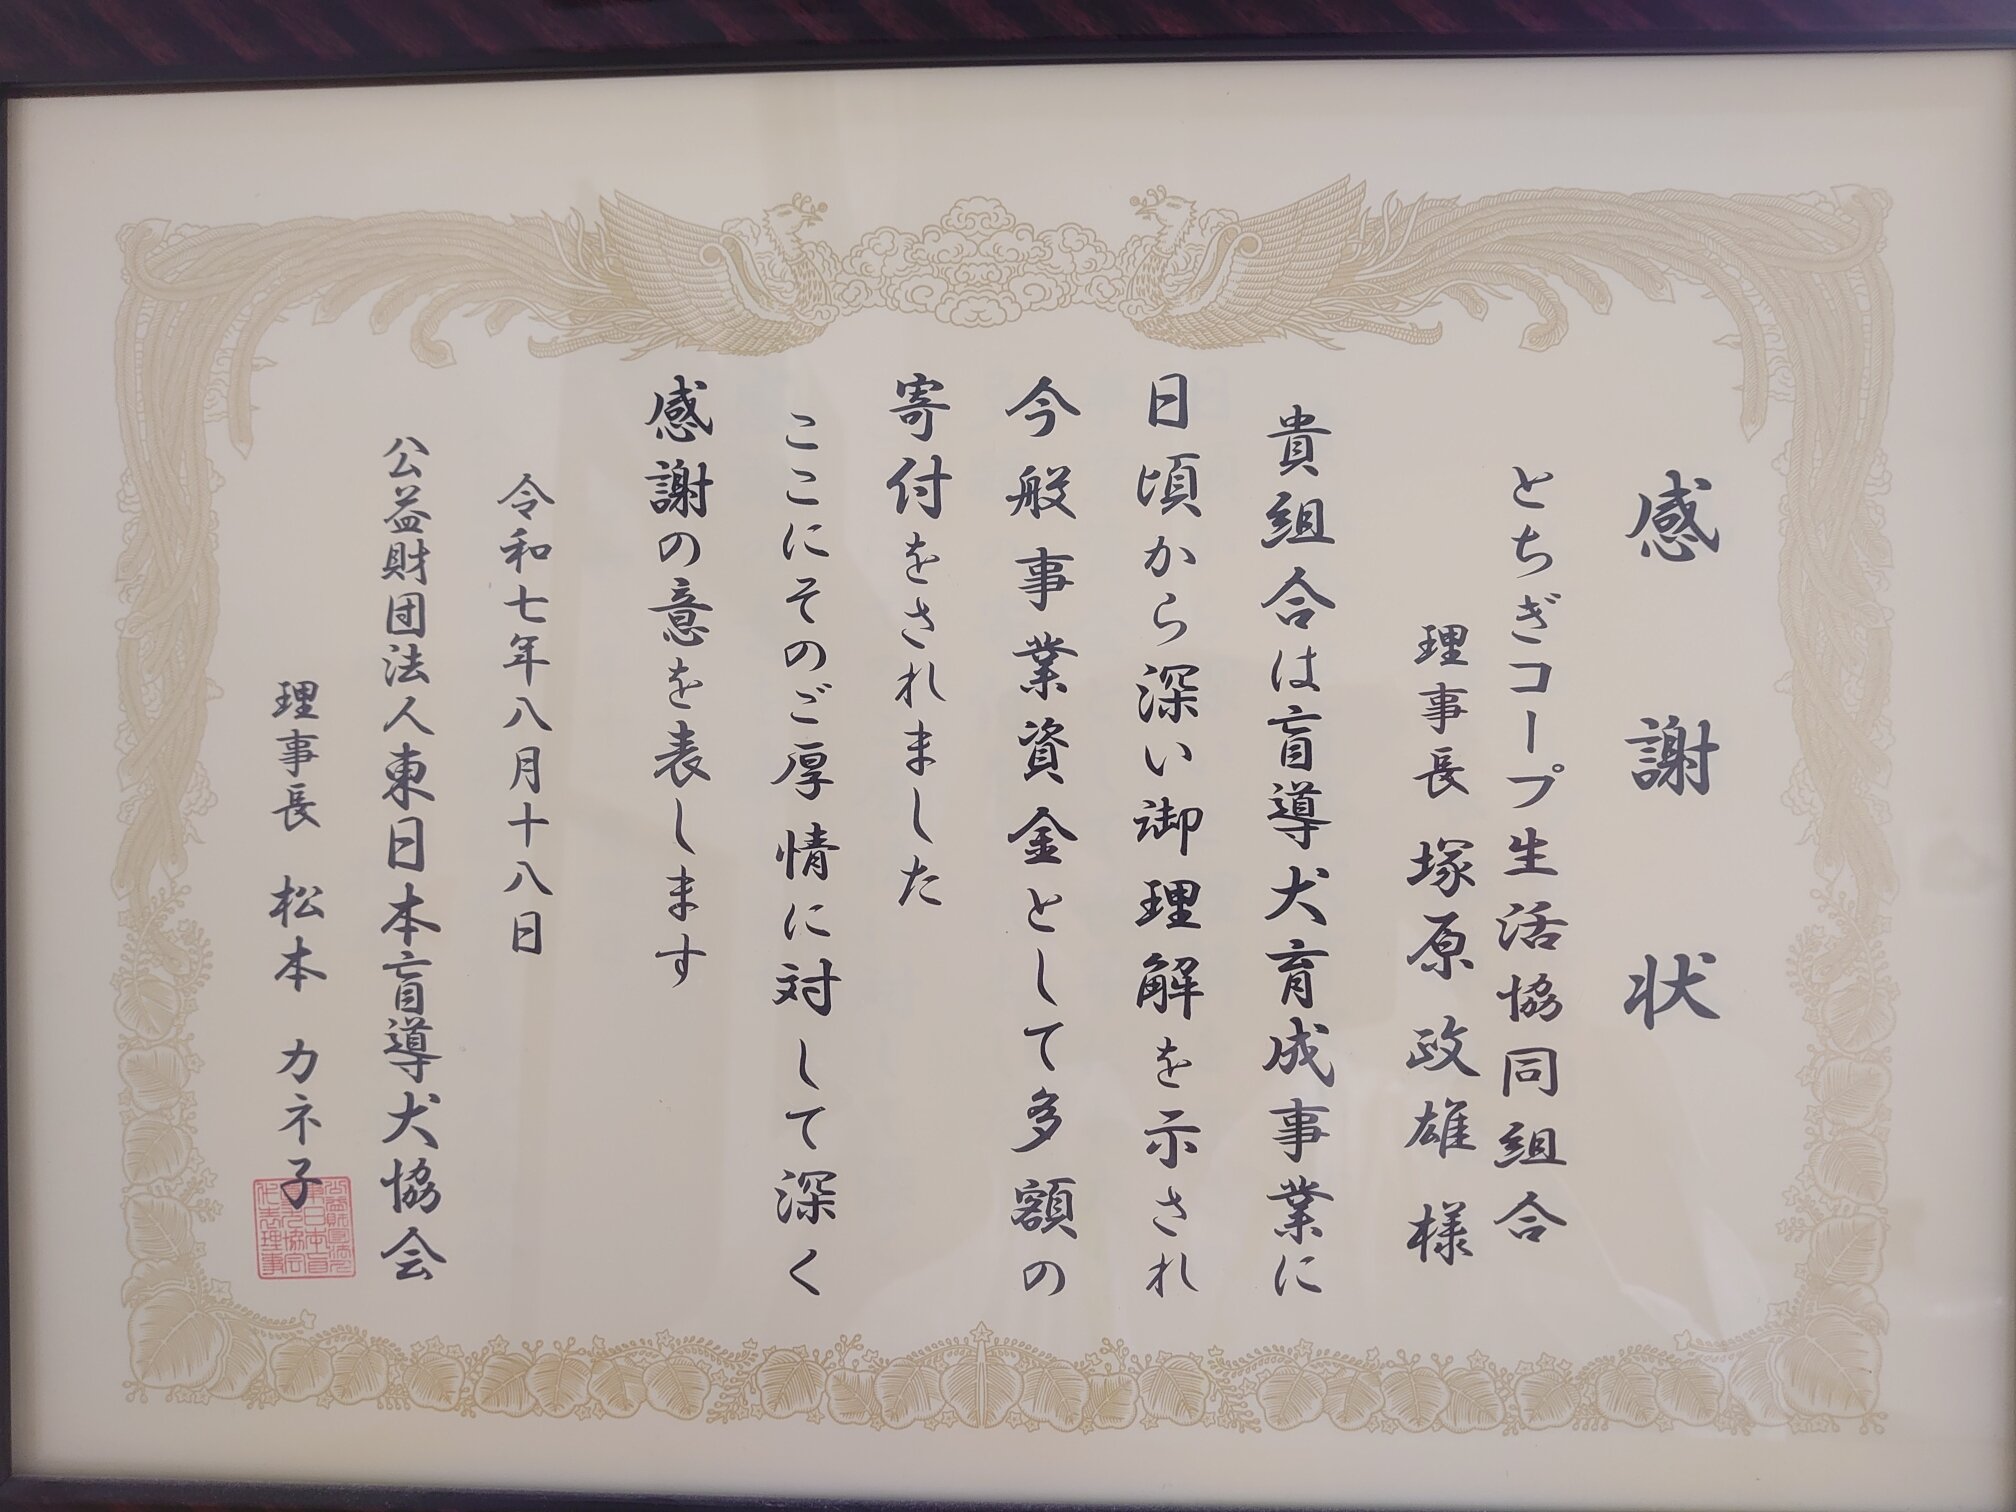 感謝状
とちぎコープ生活協同組合
理事長 塚原 政雄 様
貴組合は盲導犬育成事業に
日頃から深い御理解を示され
今般事業資金として多額の
寄付をされました
ここにそのご厚情に対して深く
感謝の意を表します
令和七年八月十八日
公益財団法人東日本盲導犬協会
理事長 松本 カネ子